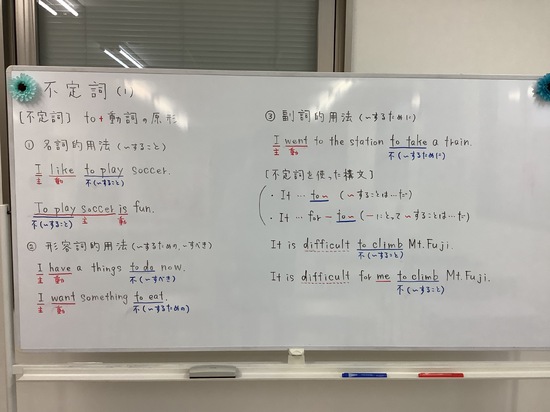 不定詞 (1)
[不定詞] to + 動詞の原形
① 名詞的用法 (〜すること)
I like to play soccer.
主 動 不(〜すること)
To play soccer is fun.
不(〜すること) 主 動
② 形容詞的用法 (〜するための、〜すべき)
I have a things to do now.
主 動 不(〜すべき)
I want something to eat.
主 動 不(〜するための)
③ 副詞的用法 (〜するために)
I went to the station to take a train.
主 動 不(〜するために)
[不定詞を使った構文]
・It … to〜 (〜することは…だ)
・It … for − to〜 (−にとって〜することは…だ)
It is difficult to climb Mt.Fuji.
不(〜すること)
It is difficult for me to climb Mt.Fuji.
不(〜すること)